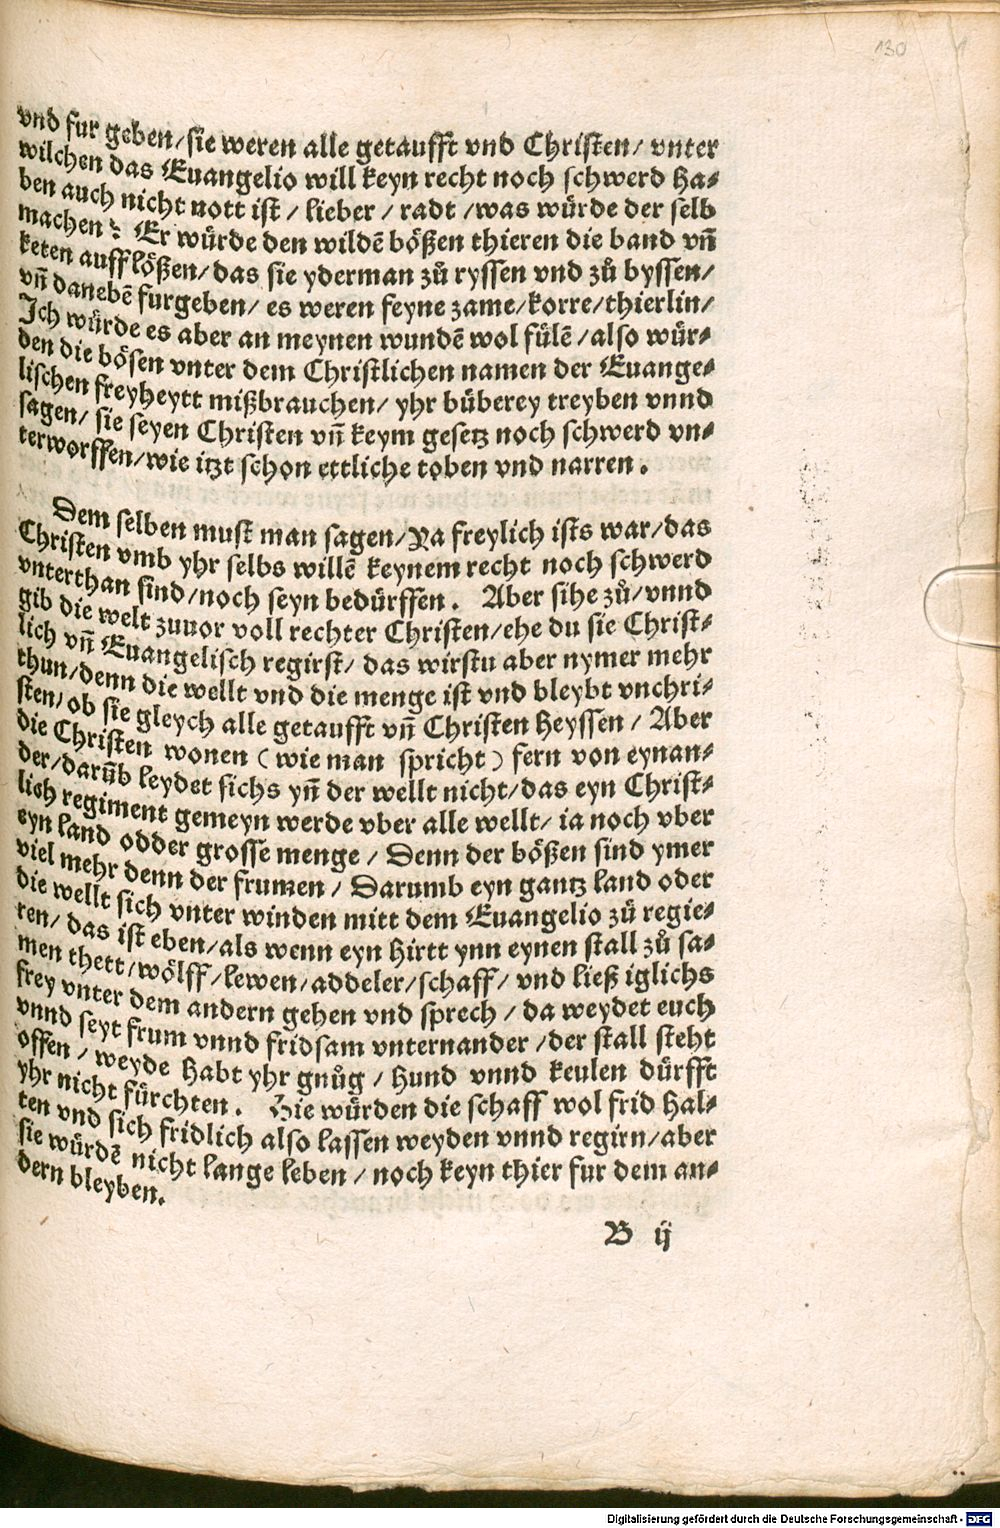 130
vnd fur geben/sie weren alle getaufft vnd Christen/ vnter
wilchen das Euangelio will keyn recht noch schwerd ha⸗
ben auch nicht nott ist / lieber / radt /was würde der selb
machen? Er würde den wildē bößen thieren die band vñ
keten aufflößen/das sie yderman zů ryssen vnd zů byssen/
vñ danebē furgeben/ es weren feyne zame/korre/thierlin/
Ich würde es aber an meynen wundē wol fülē /also wür⸗
den die bösen vnter dem Christlichen namen der Euange⸗
lischen freyheytt mißbrauchen/ yhr büberey treyben vnnd
sagen/ sie seyen Christen vñ keym gesetz noch schwerd vn⸗
terworffen/wie itzt schon ettliche toben vnd narren.
Dem selben must man sagen/Ya freylich ists war/das
Christen vmb yhr selbs willē keynem recht noch schwerd
vnterthan sind/noch seyn bedürffen. Aber sihe zů/vnnd
gib die welt zuuor voll rechter Christen/ehe du sie Christ⸗
lich vñ Euangelisch regirst/ das wirstu aber nymer mehr
thun/denn die wellt vnd die menge ist vnd bleybt vnchri⸗
sten/ob sie gleych alle getaufft vñ Christen heyssen/ Aber
die Christen wonen (wie man spricht) fern von eynan⸗
der/darūb leydet sichs yñ der wellt nicht/das eyn Christ⸗
lich regiment gemeyn werde vber alle wellt/ ia noch vber
eyn land odder grosse menge / Denn der bößen sind ymer
viel mehr denn der frumen / Darumb eyn gantz land oder
die wellt sich vnter winden mitt dem Euangelio zů regie⸗
ren/ das ist eben/als wenn eyn hirtt ynn eynen stall zů sa⸗
men thett/wölff/lewen/addeler/schaff/ vnd ließ iglichs
frey vnter dem andern gehen vnd sprech / da weydet euch
vnnd seyt frum vnnd fridsam vnternander /der stall steht
offen / weyde habt yhr gnůg / hund vnnd keulen dürfft
yhr nicht fürchten. Hie würden die schaff wol frid hal⸗
ten vnd sich fridlich also lassen weyden vnnd regirn/aber
sie würdē nicht lange leben / noch keyn thier fur dem an⸗
dern bleyben.
B ij
Digitalisierung gefördert durch die Deutsche Forschungsgemeinschaft - DFG